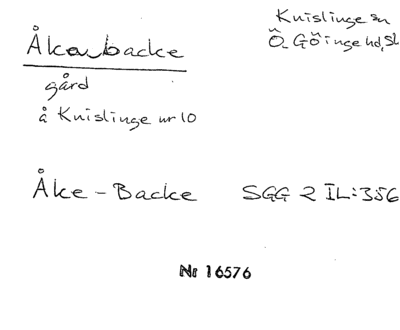 Knislinge sn
Åkabacke
Ö. Göinge hd, Sk
gård
å Knislinge nr 10
Åke-Backe SGG 2 IL:356
Nr 16576